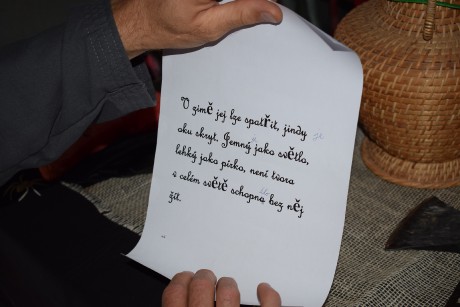 V zimě jej lze spatřit, jindy
oku skryt. Jemný jako světlo,
lehký jako pírko, není tvora
v celém světě schopna bez něj
žít.